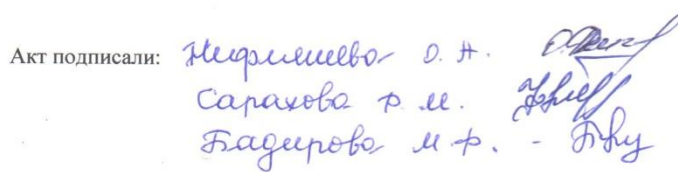 Акт подписали: Нефляшева О. А.
Сарахова Ф. М.
Бадирова М. Ф. -